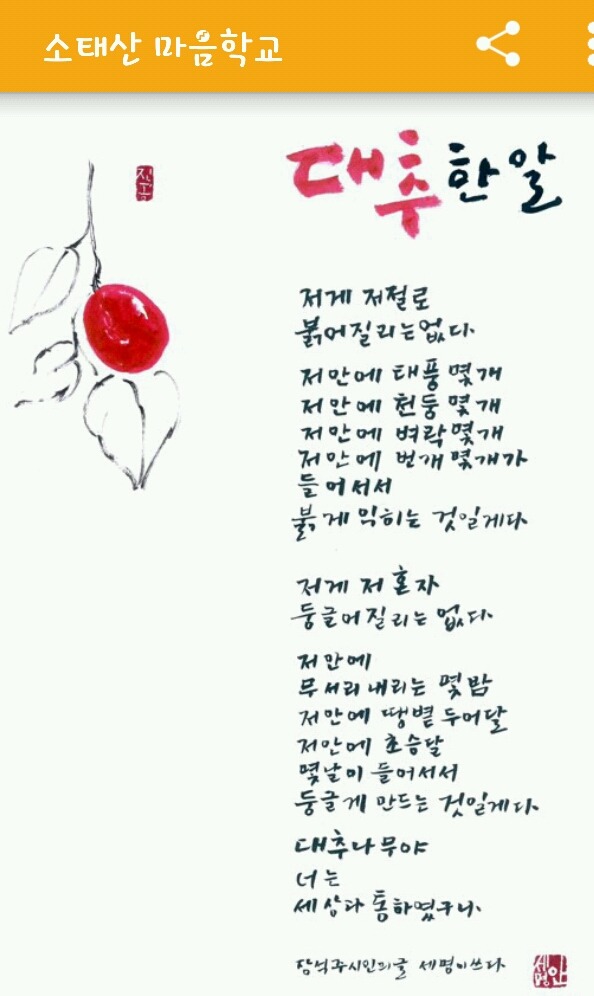 소태산 마음학교
대추 한 알
저게 저절로
붉어질리는 없다.
저 안에 태풍 몇 개
저 안에 천둥 몇 개
저 안에 벼락 몇 개
저 안에 번개 몇 개가
들어서서
붉게 익히는 것일게다
저게 저 혼자
둥글어질리는 없다.
저 안에
무서리 내리는 몇 밤
저 안에 땡볕 두어 달
저 안에 초승달
몇 날이 들어서서
둥글게 만드는 것일게다
대추나무야
너는
세상과 통하였구나.
장석주 시인의 글 세명이 쓰다